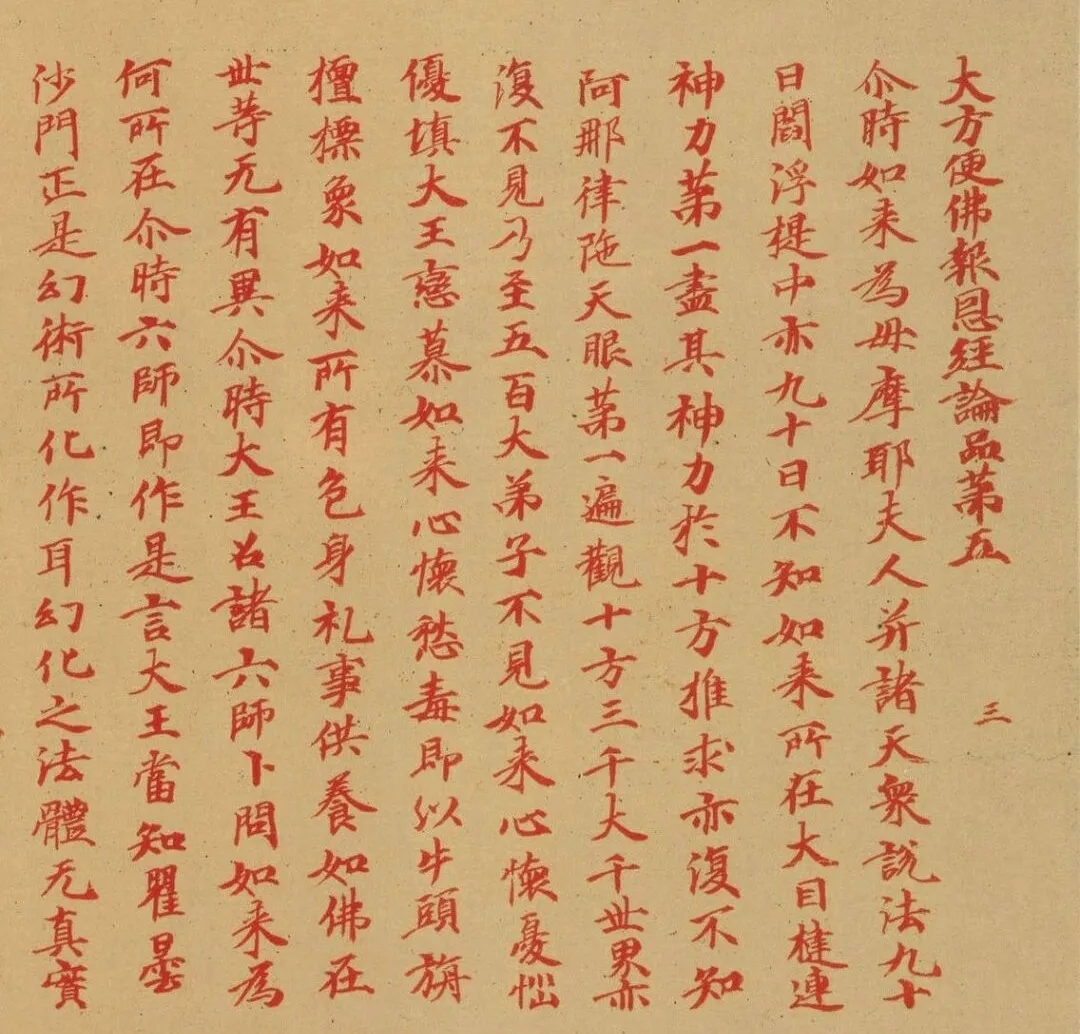 大方便佛報恩經論品第五
三
尒時如来為母摩耶夫人并諸天衆說法九十
日閻浮提中亦九十日不知如来所在大目揵連
神力苐一盡其神力於十方推求亦復不知
阿那律陁天眼苐一遍觀十方三千大千世界亦
復不見乃至五百大弟子不見如来心懷憂惱
優填大王戀慕如来心懷愁毒即以牛頭旃
檀摽象如来所有色身礼事供養如佛在
世等无有異尒時大王召諸六師卜問如来為
何所在尒時六師即作是言大王當知瞿曇
沙門正是幻術所化作耳幻化之法體无真實